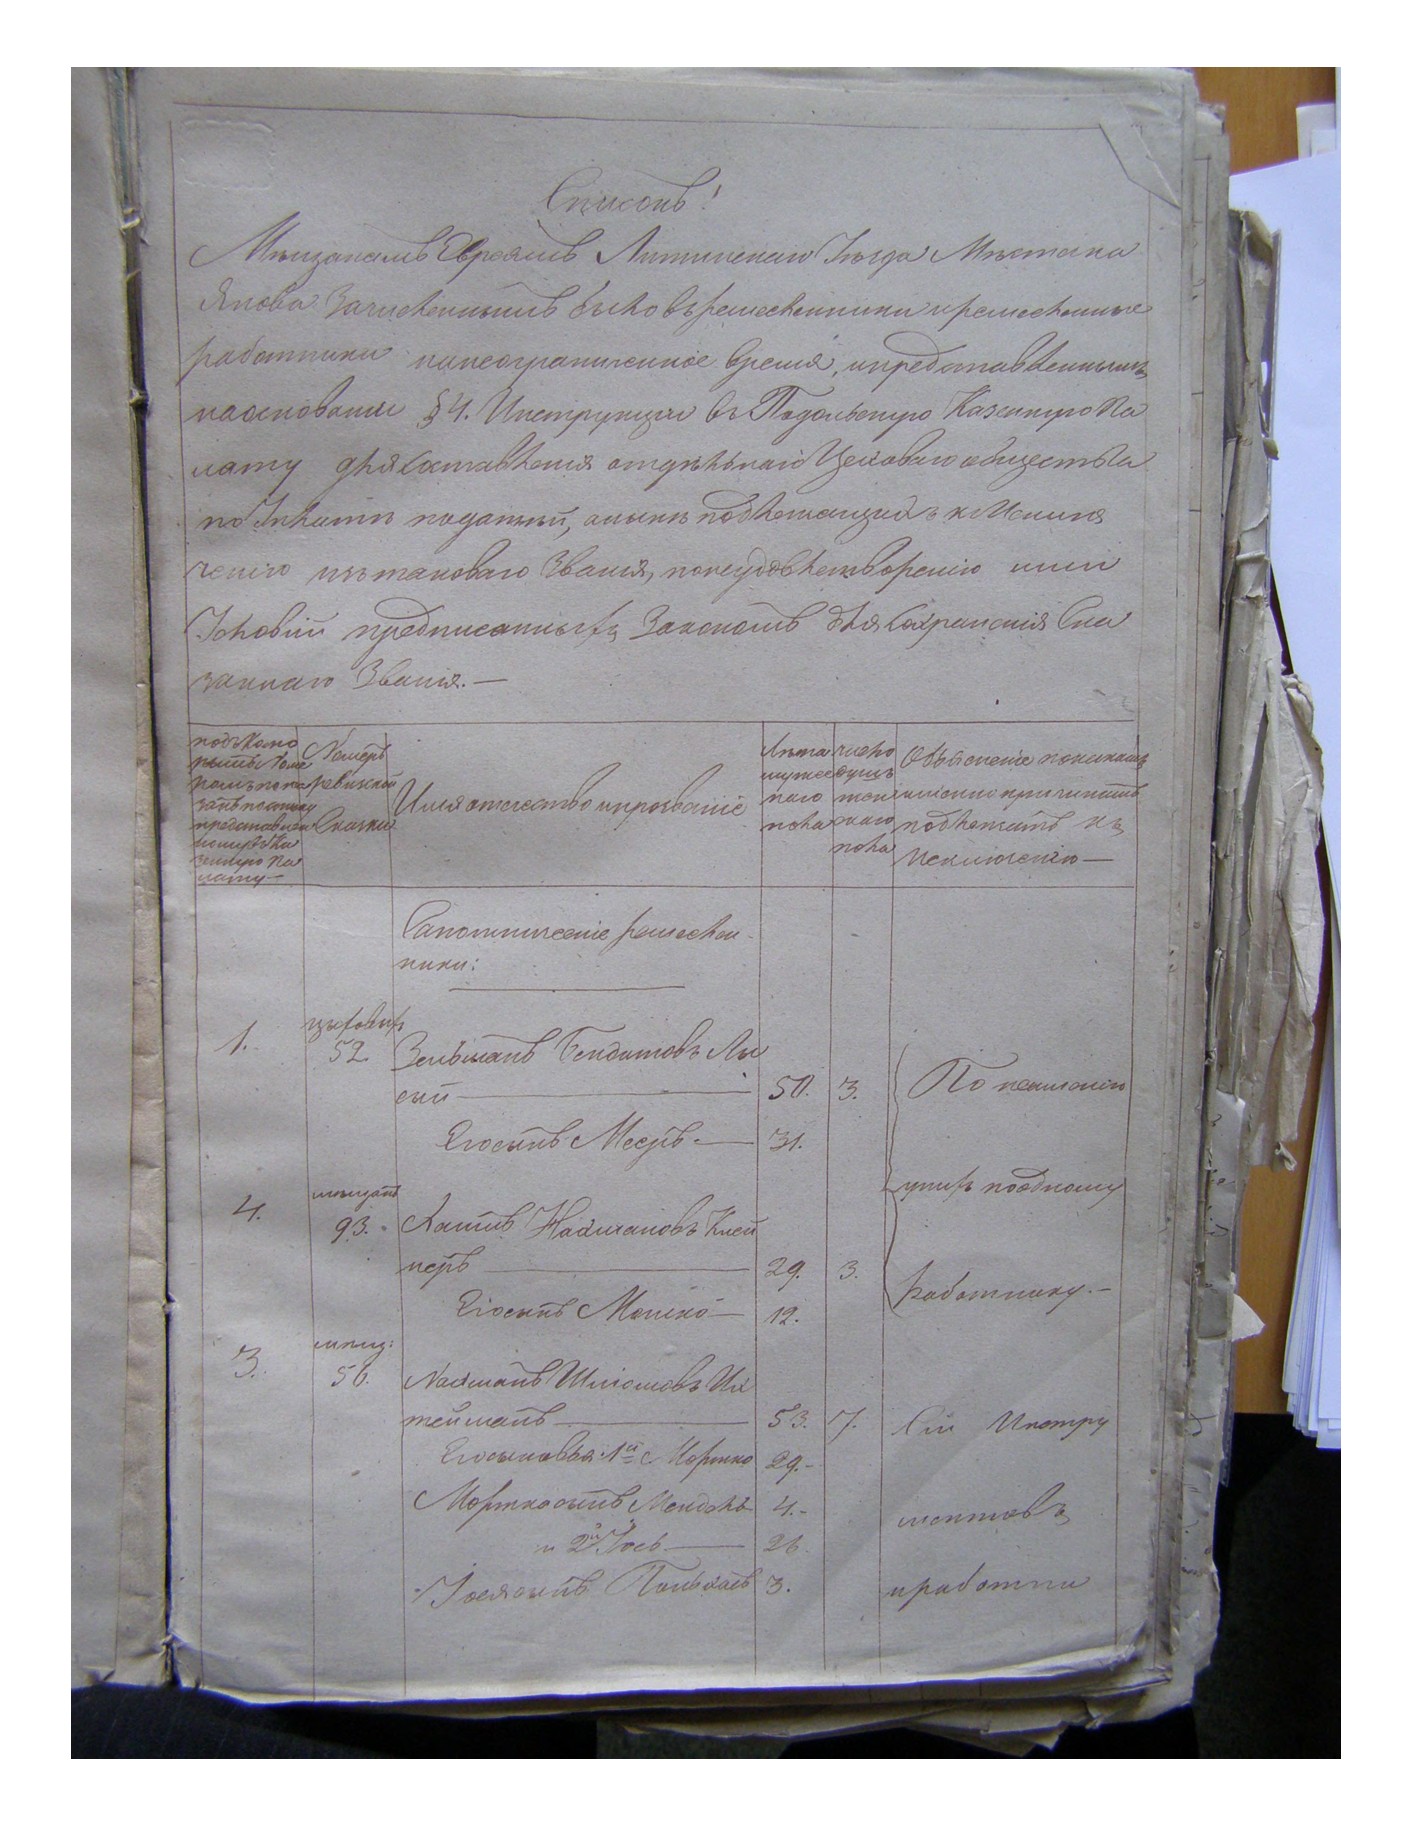 Списокъ!
Мѣщанамъ Евреямъ Литинскаго Уѣзда Мѣстечка
Янова Зачисленнымъ было въ ремесленники и ремесленные
работники на неограниченное время, и представленнымъ
на основании § 4. Инструкции въ Подольскую Казенную Па
лату для Составления отдѣльнаго Цеховаго общества
по Уплатѣ податей, а нынѣ подлежащихъ к Исклю
чению изъ таковаго Звания, по неудовлетворению ими
Условий предписанныхъ Закономъ для Сохранения Ска
заннаго Звания.—
подъ Како
рымъ Номе
ромъ пока
занъ по списку
представлен
ному въ Ка
зенную Па
лату—
Номеръ
ревизской
Сказки
Имя отчество и прозвание
Лѣта
мужес
каго
пола
число
душъ
жен
скаго
пола
Объяснение по какимъ
именно причинамъ
подлежатъ къ
Исключению—
Сапожнические ремеслен-
ники:
1.
52.
Зельманъ Бендитовъ Лы
сый—
50. 3.
По неимению
Его сынъ Мееръ— 31.
у нихъ по одному
4.
мѣщанъ
93.
Хаимъ Нахмановъ Клей
неръ— 29. 3.
Работнику.—
Его сынъ Мошко— 12.
3.
мѣщ:
56.
Нахманъ Шлиомовъ Их
тейманъ— 53. 7.
Сии Инстру
Его сыновья 1й Мортко 29.-
Мортка сынъ Мендель 4.-
ментовъ
и 2й Иось— 26
Иося сынъ Пинхасъ 3.
и работни